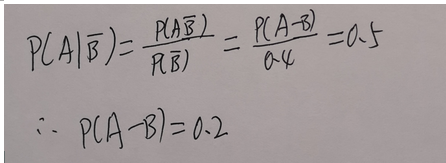 P(A|B̅) = P(AB̅)/P(B̅) = P(A-B)/0.4 = 0.5
∴ P(A-B) = 0.2